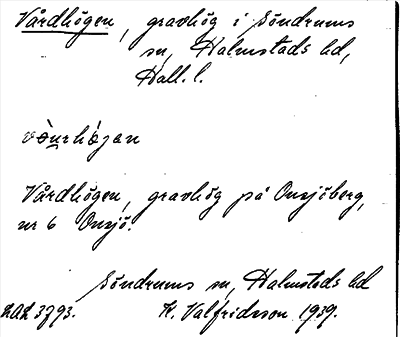 Vårdhögen, gravhög i Söndrums
sn, Halmstads hd,
Hall. l.
Vårdhögen, gravhög på Onsjöberg,
nr 6 Onsjö.
Söndrums sn, Halmstads hd
3793. K. Valfridsson 1939.